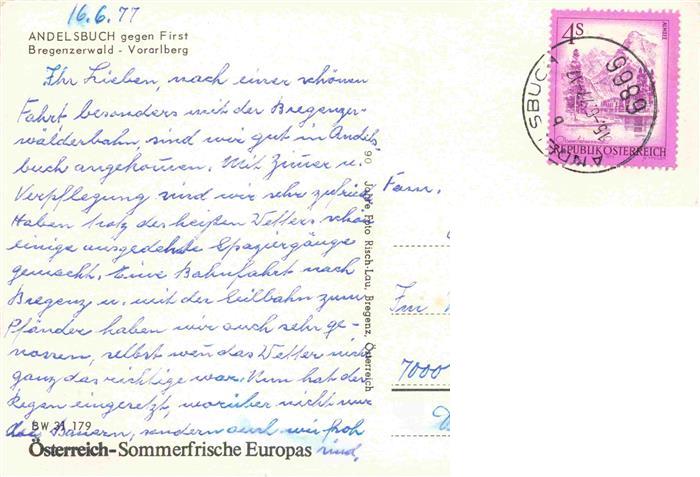 16.6.77
ANDELSBUCH gegen First
Bregenzerwald - Vorarlberg
Ihr Lieben, nach einer schönen
Fahrt besonders mit der Bregenzer-
wälderbahn, sind wir gut in Andels-
buch angekommen. Mit Zimer u.
Verpflegung sind wir sehr zufried
Haben trotz des heißen Wetters schon
einige ausgedehnte Spaziergänge
gemacht. Eine Bahnfahrt nach
Bregenz u. mit der Seilbahn zum
Pfänder haben wir auch sehr ge-
nossen, selbst wen das Wetter nicht
ganz das richtige war. Nun hat der
Regen eingesetzt, worüber nicht nur
die Bauern, sondern auch wir froh
sind.
BW 31 179
Österreich-Sommerfrische Europas
90 Jahre Foto Risch-Lau, Bregenz, Österreich
4S
ALMSEE
REPUBLIK ÖSTERREICH
6866
ANDELSBUCH
Fam.
Im
7000